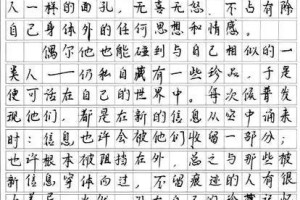 人一样的面孔，无喜无悲，不占有除
自己身体外的任何思想和情感。
偶尔他也能碰到与自己相似的一
类人——仍私自藏有一些珍品，于是
便可活在自己的世界中。每次很普发
现他们，都是在新的信息从空中诵来
时：信息也许会被他们收留一部分；
也许根本被阻挡在外，总之与那些被
新信息穿体而过，不留痕迹的人有很